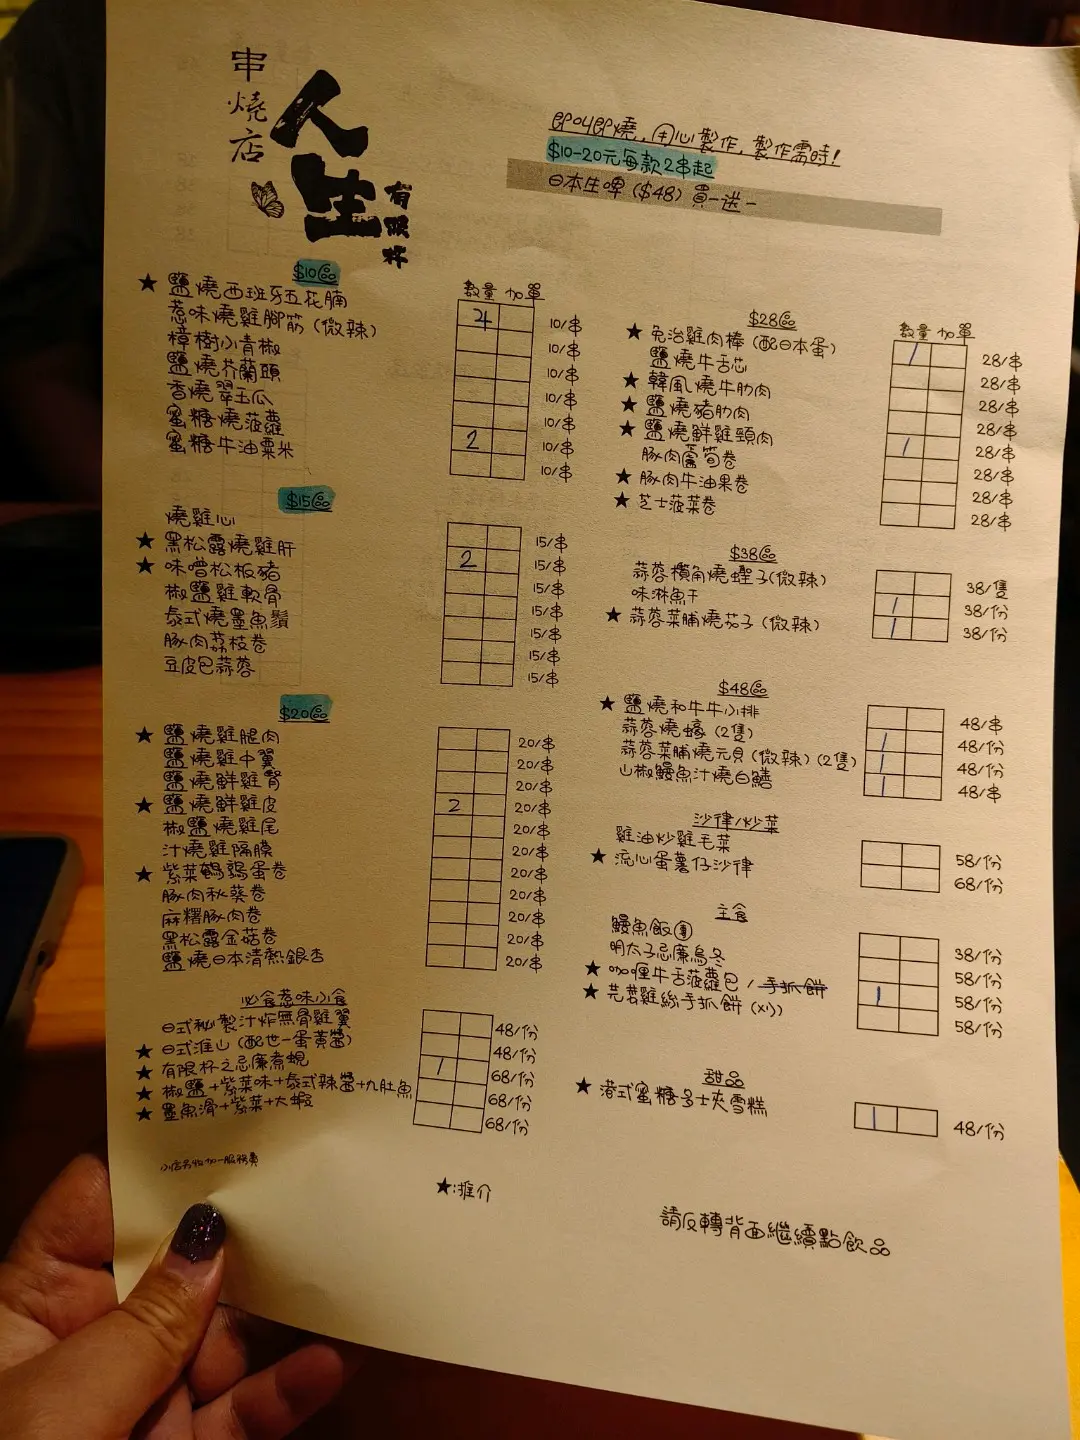 串燒店
人生
有限杯
即叫即燒，用心製作，製作需時！
$10-20元每款2串起
日本生啤 ($48) 買一送一
$10區
數量 加單
★ 鹽燒西班牙五花腩 4 10/串
惹味燒雞腳筋 (微辣) 10/串
樟樹小青椒 10/串
鹽燒芥蘭頭 10/串
香燒翠玉瓜 10/串
蜜糖燒菠蘿 2 10/串
蜜糖牛油粟米 10/串
$15區
燒雞心 15/串
★ 黑松露燒雞肝 2 15/串
★ 味噌松板豬 15/串
椒鹽雞軟骨 15/串
泰式燒墨魚鬚 15/串
豚肉荔枝卷 15/串
豆皮包蒜蓉 15/串
$20區
★ 鹽燒雞腿肉 20/串
鹽燒雞中翼 20/串
鹽燒鮮雞腎 20/串
★ 鹽燒鮮雞皮 2 20/串
椒鹽燒雞尾 20/串
汁燒雞隔膜 20/串
★ 紫菜鵪鶉蛋卷 20/串
豚肉秋葵卷 20/串
麻糬豚肉卷 20/串
黑松露金菇卷 20/串
鹽燒日本清熱銀杏 20/串
必食惹味小食
日式秘製汁炸無骨雞翼 48/份
★ 日式淮山 (配世一蛋黃醬) 48/份
★ 有限杯之忌廉煮蜆 1 68/份
★ 椒鹽+紫菜味+泰式辣醬+九肚魚 68/份
★ 墨魚滑+紫菜+大蝦 68/份
小店另收加一服務費
★:推介
$28區
數量 加單
★ 免治雞肉棒 (配日本蛋) 1 28/串
鹽燒牛舌芯 28/串
★ 韓風燒牛肋肉 28/串
★ 鹽燒豬肋肉 28/串
★ 鹽燒鮮雞頸肉 1 28/串
豚肉蘆筍卷 28/串
★ 豚肉牛油果卷 28/串
★ 芝士菠菜卷 28/串
$38區
蒜蓉欖角燒蟶子 (微辣) 38/隻
味淋魚干 1 38/份
★ 蒜蓉菜脯燒茄子 (微辣) 1 38/份
$48區
★ 鹽燒和牛牛小排 48/串
蒜蓉燒蠔 (2隻) 1 48/份
蒜蓉菜脯燒元貝 (微辣) (2隻) 1 48/份
山椒鰻魚汁燒白鱔 1 48/串
沙律/炒菜
雞油炒雞毛菜 58/份
★ 流心蛋薯仔沙律 68/份
主食
鰻魚飯團 38/份
明太子忌廉烏冬 58/份
★ 咖喱牛舌菠蘿包 / 手抓餅 1 58/份
★ 芫荽雞絲手抓餅 (X心) 58/份
甜品
★ 港式蜜糖多士夾雪糕 1 48/份
請反轉背面繼續點飲品